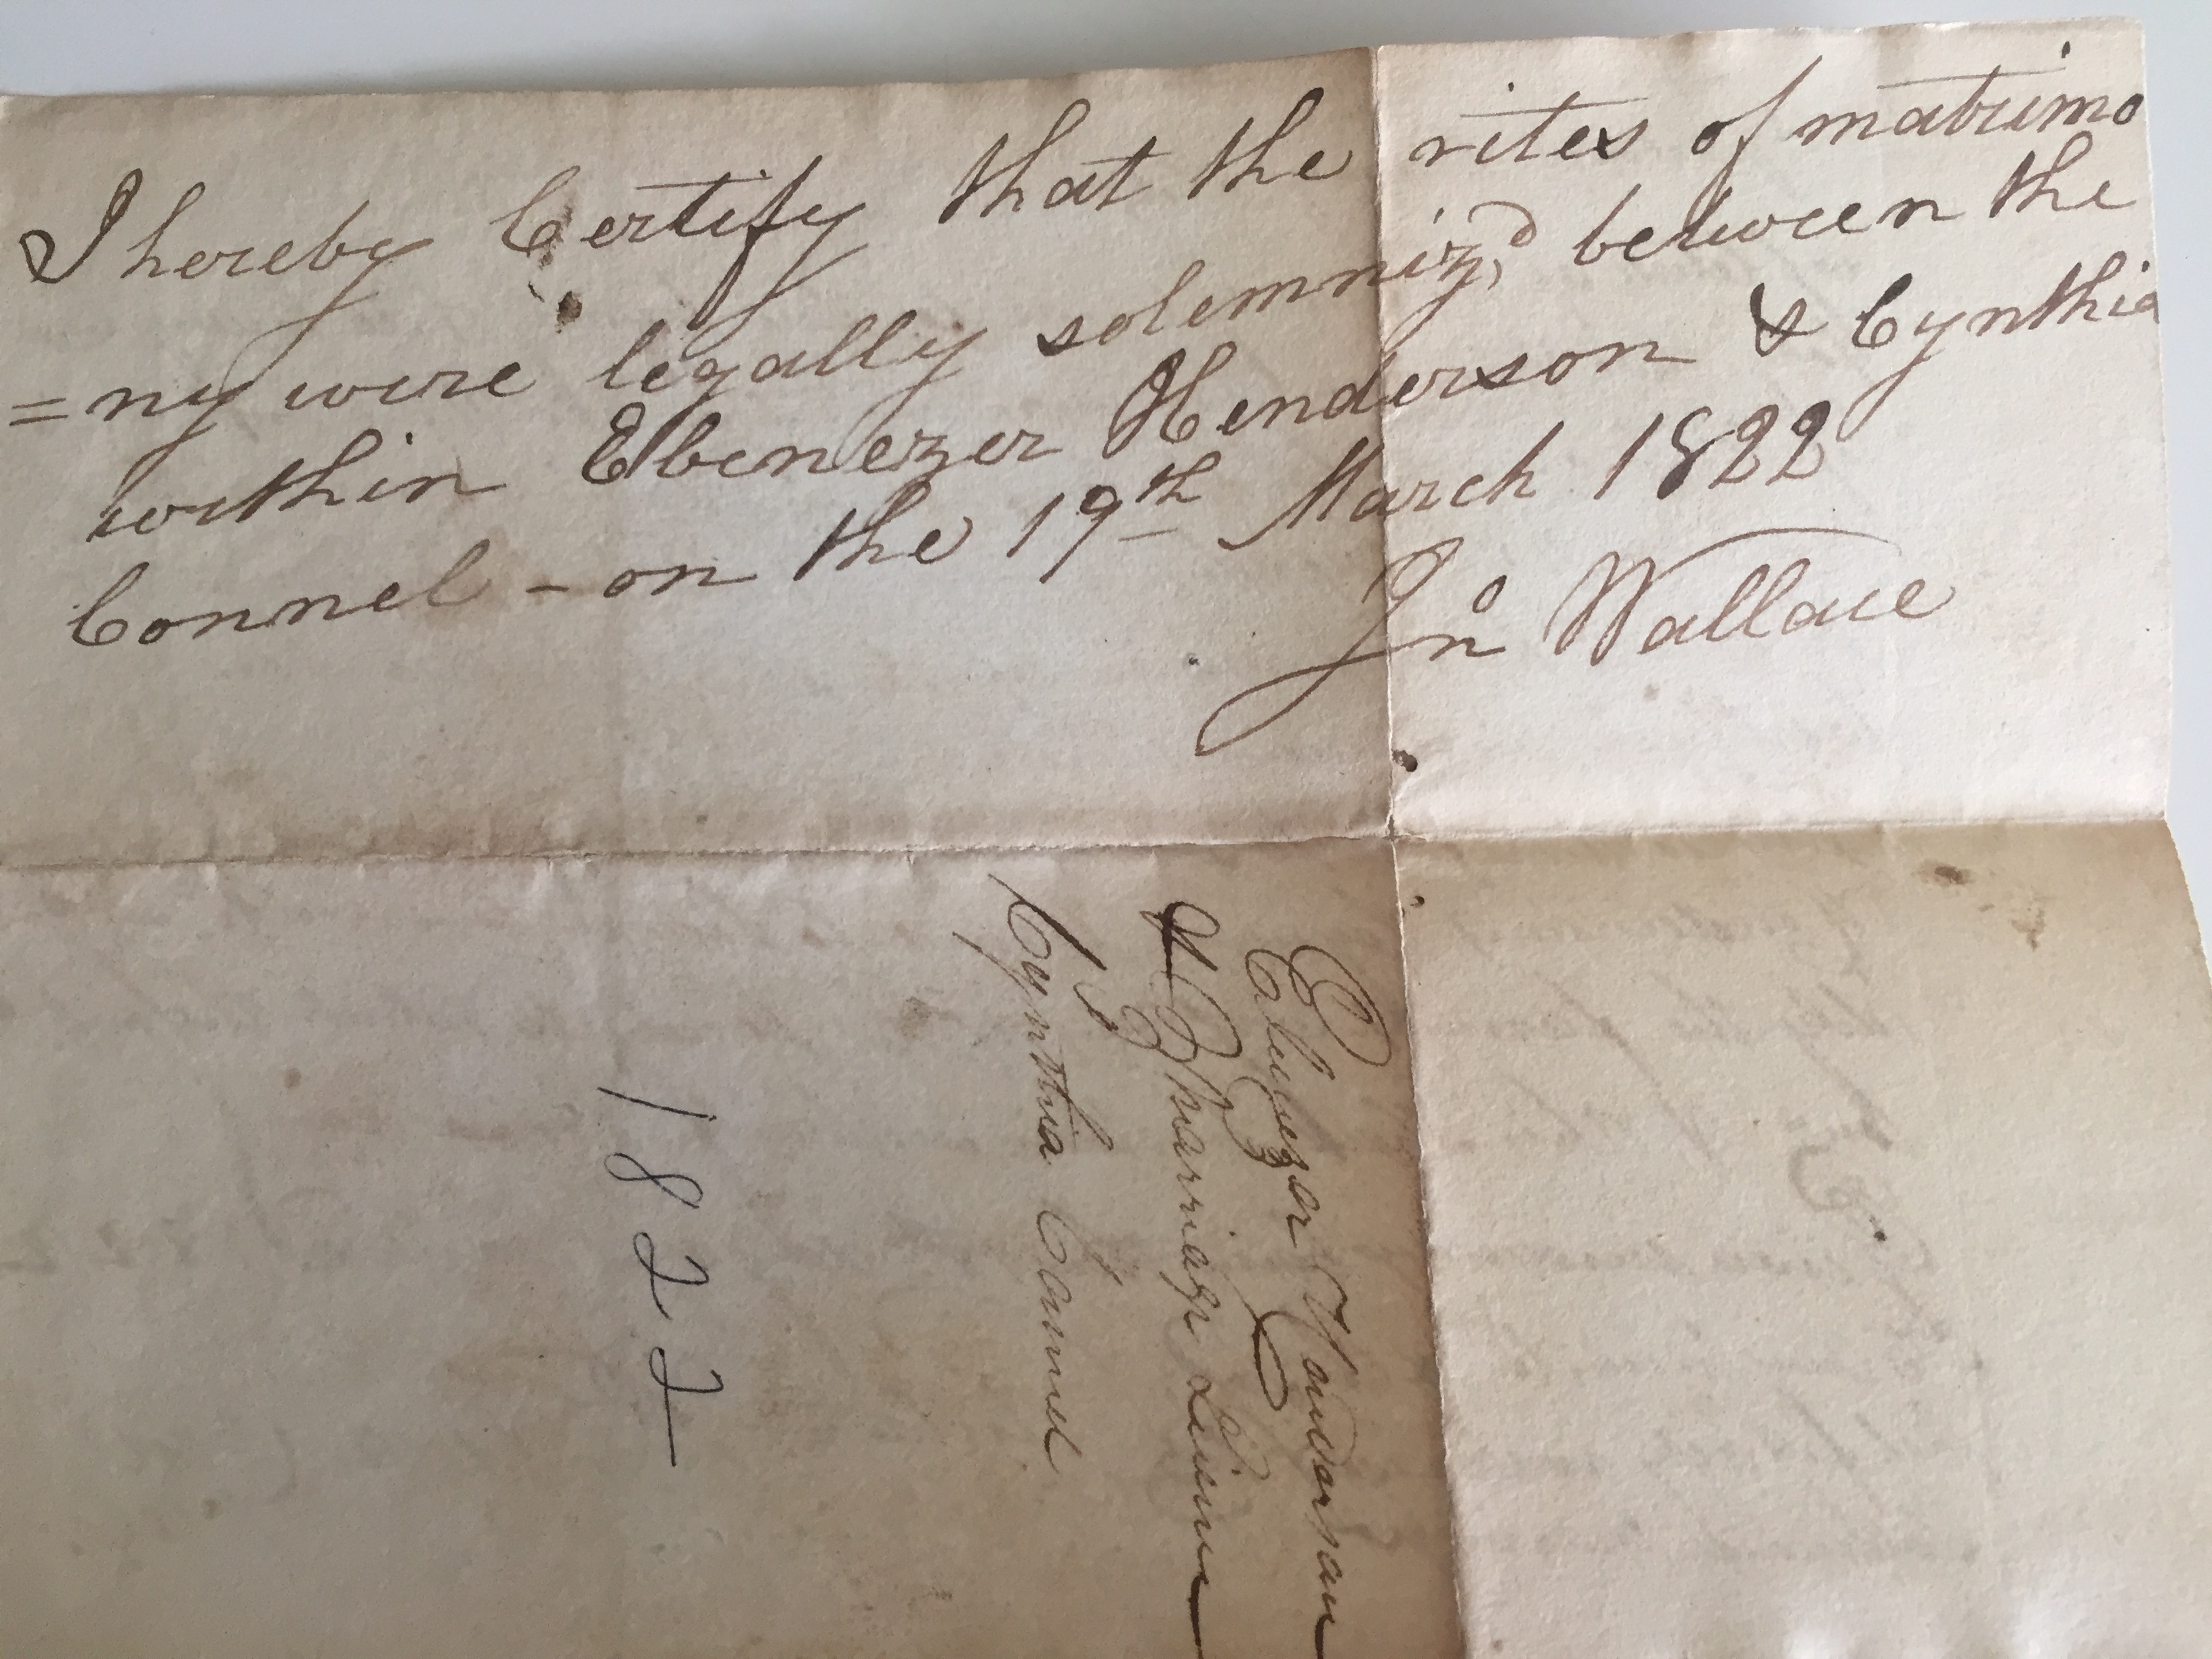 I hereby Certify that the rites of matrimo
=ny were legally solemniz,d between the
within Ebenezer Henderson & Cynthia
Connel - on the 19th March 1822
Jno Wallace
Ebenezer Hendersan
Marriage License
Cynthia Connel
1822